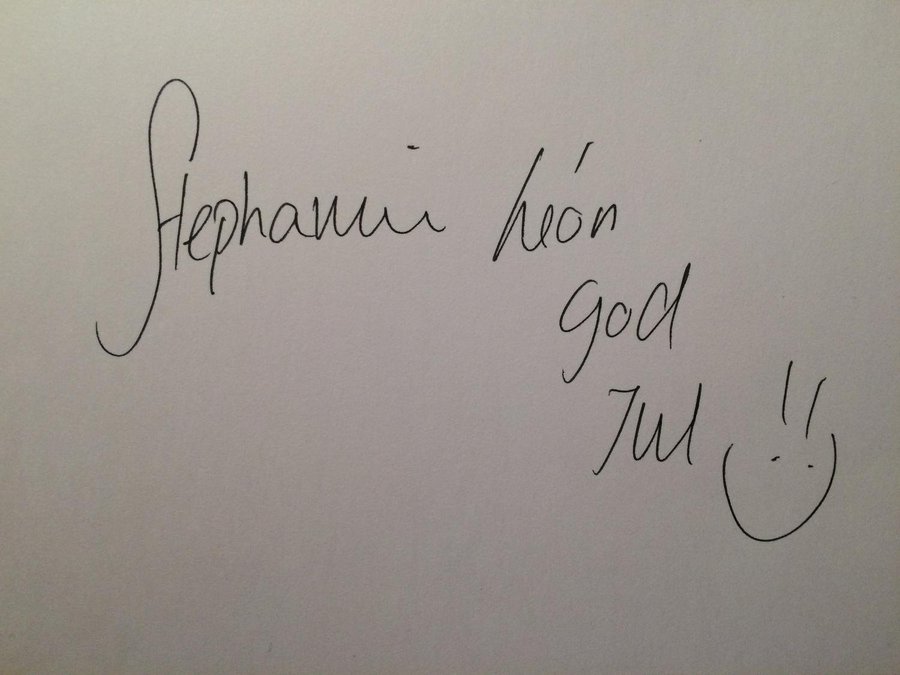 Stephanie León
god
Jul !!